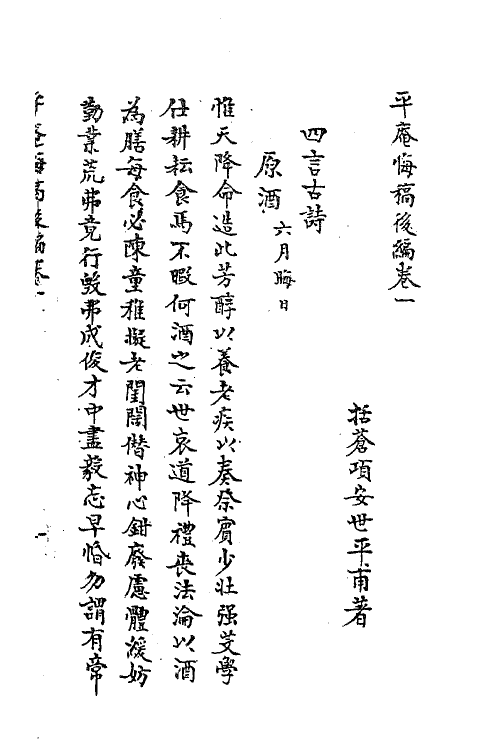 平庵悔稿後編卷一
括蒼項安世平甫著
四言古詩
原酒 六月晦日
惟天降命造此芳醇以養老疾以奏祭賓少壯强艾學
仕耕耘食焉不暇何酒之云世哀道降禮喪法淪以酒
為膳每食必陳童稚擬老閨閤偕神心鉗廢慮體緩妨
勤業荒弗竟行毀弗成俊才中盡毅志早惛勿謂有常
平庵悔稿後編卷一